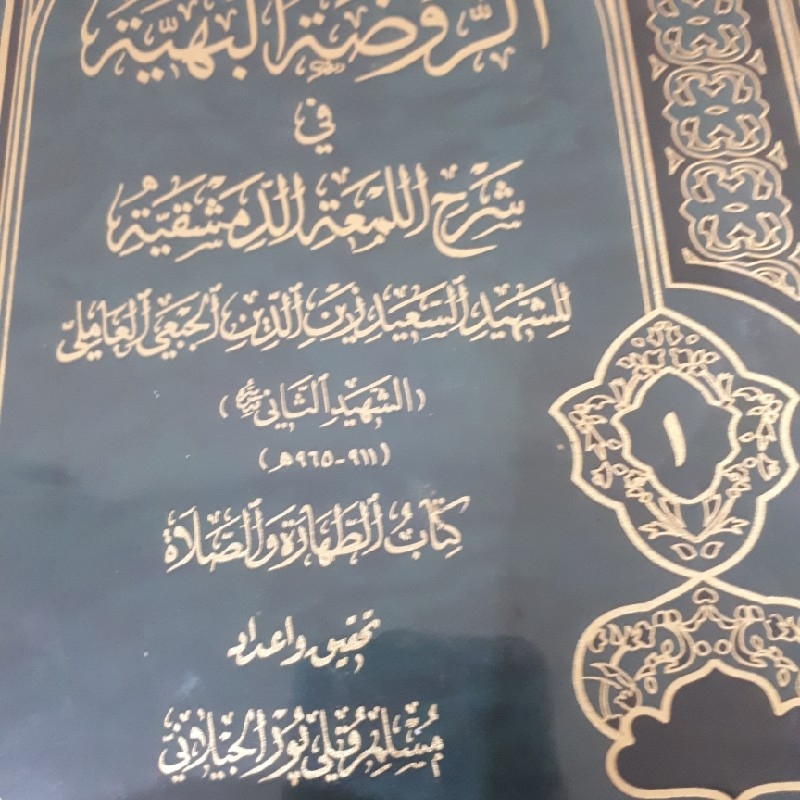 الروضة البهية
في
شرح اللمعة الدمشقية
للشهيد السعيد زين الدين الجبعي العاملي
(الشهيد الثاني)
(٩١١-٩٦٥هـ)
١
كتاب الطهارة والصلاة
تحقيق واعداد
مسلم قلي پور الجيلاني